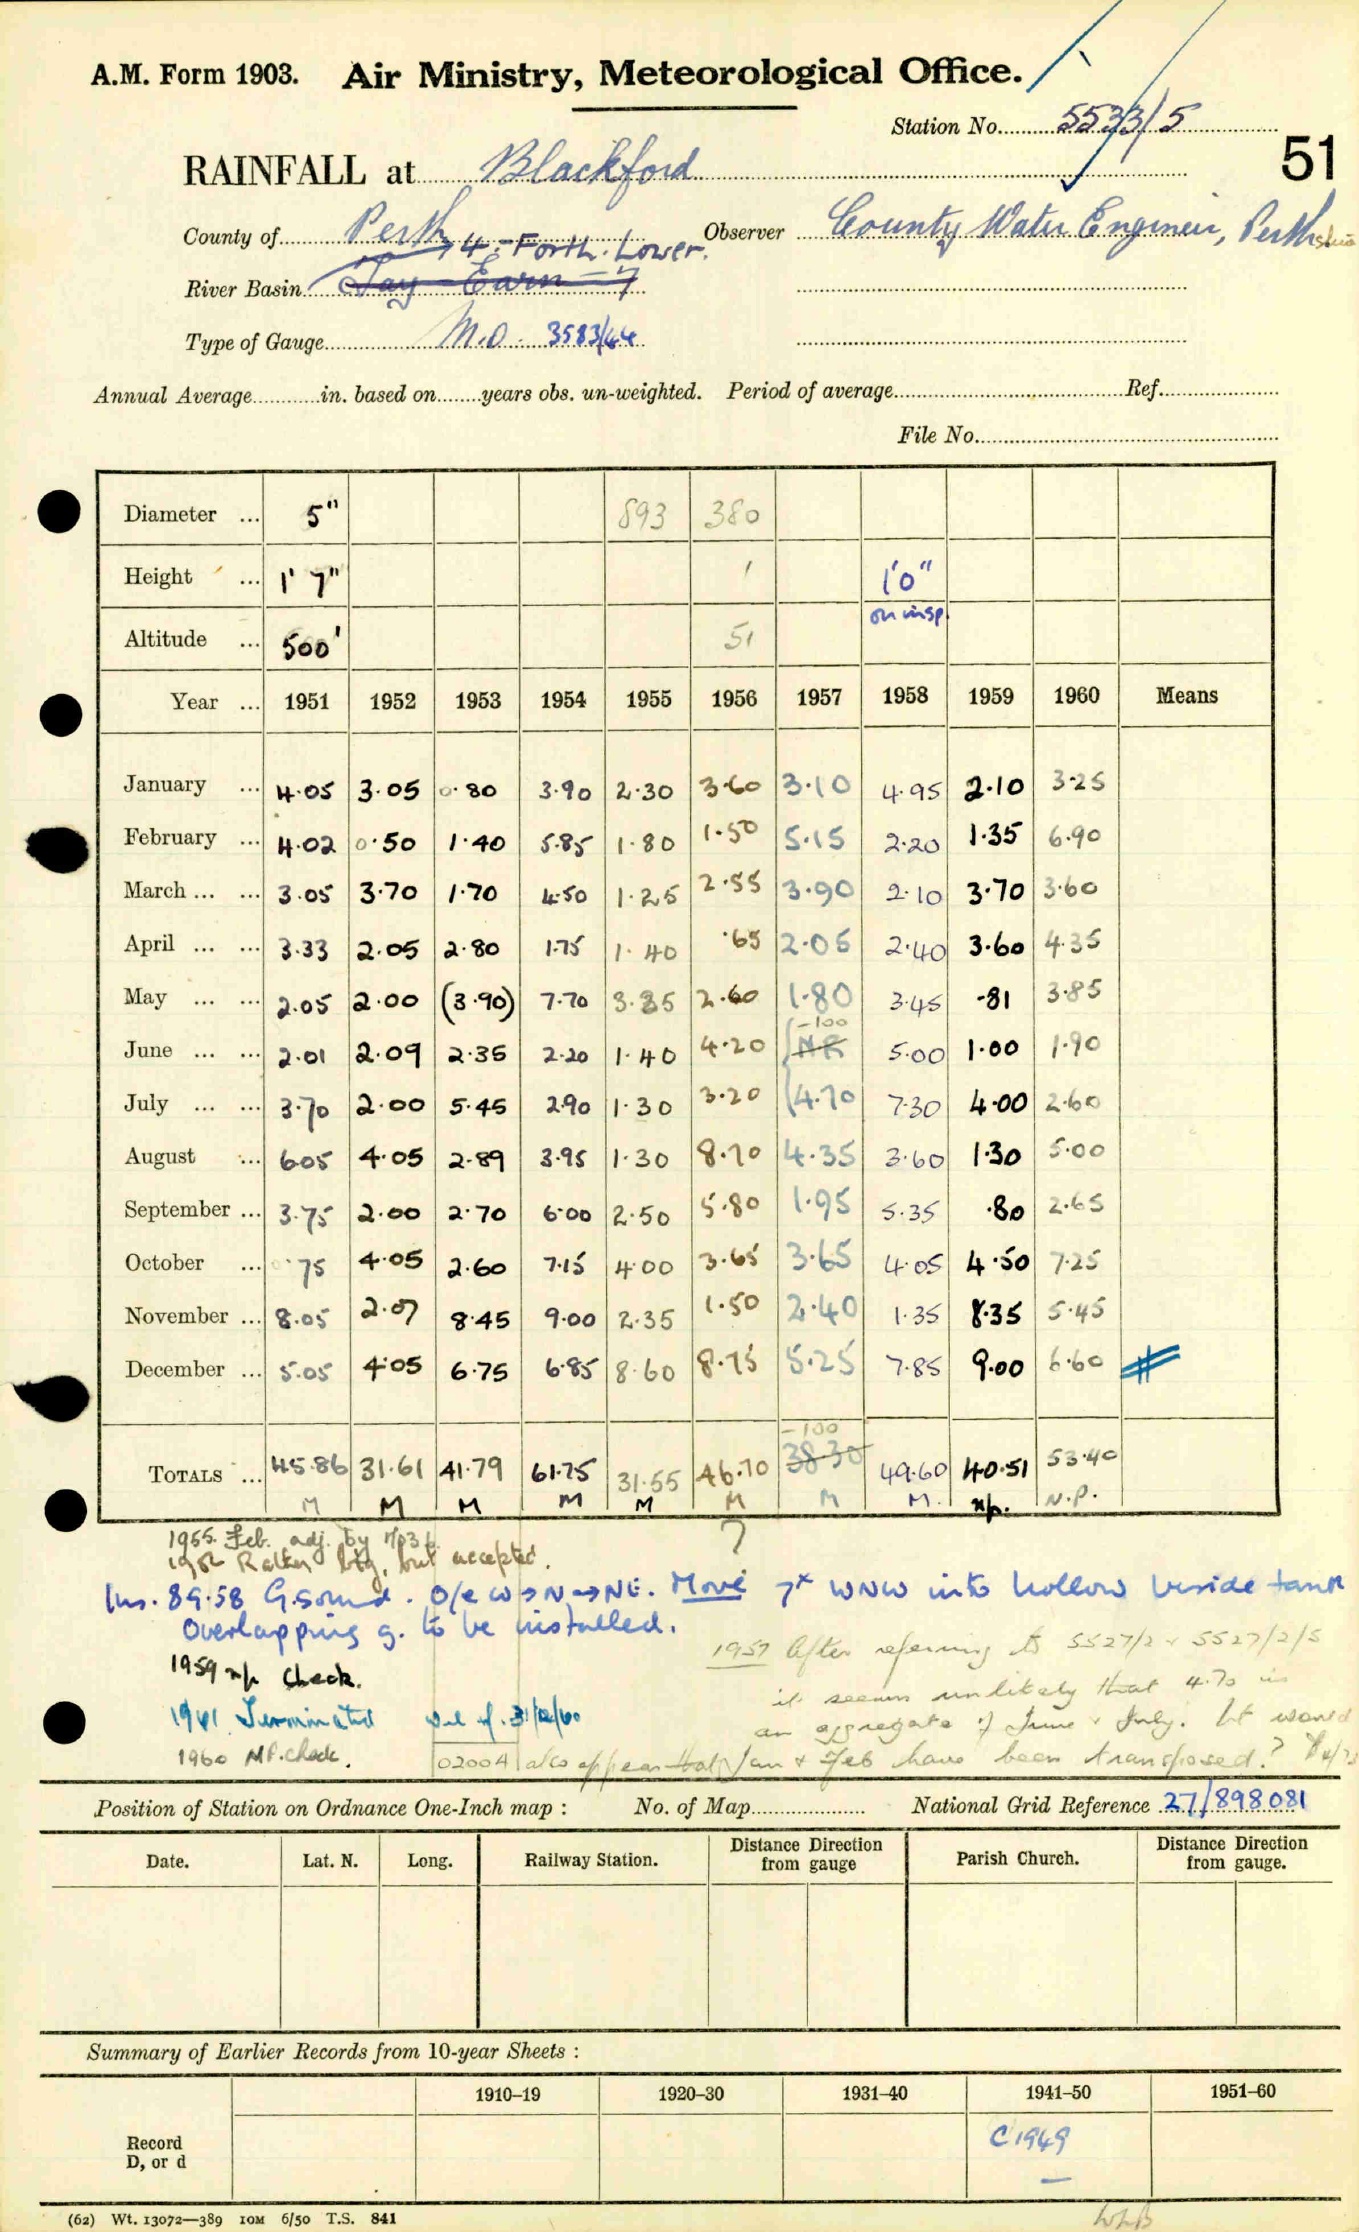 A.M. Form 1903. Air Ministry, Meteorological Office.
Station No. 5533/5
51
RAINFALL at Blackford
County of Perth Observer County Water Engineer, Perthshire
4 - Forth. Lower.
River Basin Tay - Earn = 7
Type of Gauge M.O. 3583/44
Annual Average in. based on years obs. un-weighted. Period of average Ref.
File No.
Diameter ... 5" 893 380
Height ... 1' 7" 1 1'0"
on insp.
Altitude ... 500' 51
Year ... 1951 1952 1953 1954 1955 1956 1957 1958 1959 1960 Means
January ... 4.05 3.05 0.80 3.90 2.30 3.60 3.10 4.95 2.10 3.25
February ... 4.02 0.50 1.40 5.85 1.80 1.50 5.15 2.20 1.35 6.90
March ... ... 3.05 3.70 1.70 4.50 1.25 2.55 3.90 2.10 3.70 3.60
April ... ... 3.33 2.05 2.80 1.75 1.40 .65 2.05 2.40 3.60 4.35
May ... ... 2.05 2.00 (3.90) 7.70 3.35 2.60 1.80 3.45 .81 3.85
-100
June ... ... 2.01 2.09 2.35 2.20 1.40 4.20 NR 5.00 1.00 1.90
July ... ... 3.70 2.00 5.45 2.90 1.30 3.20 4.70 7.30 4.00 2.60
August ... 6.05 4.05 2.89 3.95 1.30 8.70 4.35 3.60 1.30 5.00
September ... 3.75 2.00 2.70 6.00 2.50 5.80 1.95 5.35 .80 2.65
October ... 0.75 4.05 2.60 7.15 4.00 3.65 3.65 4.05 4.50 7.25
November ... 8.05 2.07 8.45 9.00 2.35 1.50 2.40 1.35 8.35 5.45
December ... 5.05 4.05 6.75 6.85 8.60 8.75 5.25 7.85 9.00 6.60
-100
TOTALS ... 45.86 31.61 41.79 61.75 31.55 46.70 38.30 49.60 40.51 53.40
M M M M M M M M. np. N.P.
?
1955. Feb. adj. by
Rather big, but accepted.
Ins. 8.9.58 G. sound. O/e W→N→NE. Move 7x WNW into hollow beside tank
Overlapping g. to be installed.
1957 After referring to 5527/2 & 5527/2/5
1959 np check.
it seems unlikely that 4.70 is
1961 Terminated 31/12/60
an aggregate of June & July. It would
1960 NP. check. 02004 also appear that Jan & Feb have been transposed?
Position of Station on Ordnance One-Inch map : No. of Map National Grid Reference 27/898081
Date. Lat. N. Long. Railway Station. Distance Direction from gauge Parish Church. Distance Direction from gauge.
Summary of Earlier Records from 10-year Sheets :
1910–19 1920–30 1931–40 1941–50 1951–60
Record
D, or d
C 1949
—
(62) Wt. 13072—389 10M 6/50 T.S. 841